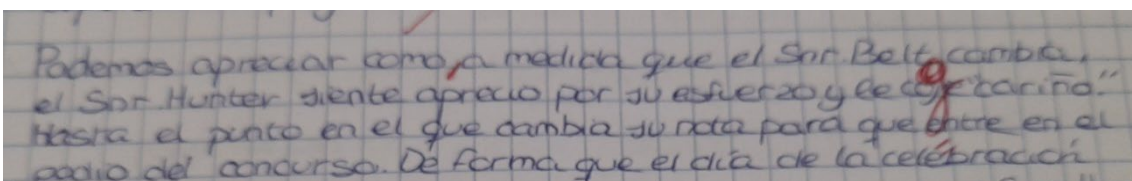 Podemos apreciar como, a medida que el Snr. Belt cambia,
el Snr. Hunter siente aprecio por su esfuerzo y le coge "cariño".
Hasta el punto en el que cambia su nota para que entre en el
podio del concurso. De forma que el día de la celebración